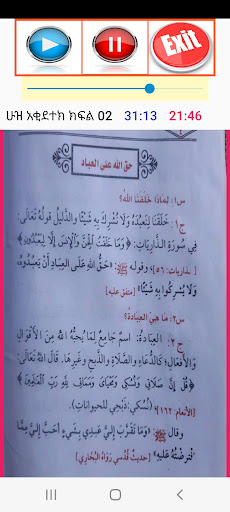 Exit
ሁዝ አቂደተክ ክፍል 02 31:13 21:46
حق الله على العباد
س١: لماذا خَلَقَنا اللهُ؟
ج١: خَلَقَنا لِنَعبُدَهُ وَلَا نُشرِكَ بِهِ شَيْئًا والدَّلِيلُ قولُهُ تَعَالَى
فِي سُورَةِ الذَّارِيَاتِ: ﴿وَمَا خَلَقْتُ الْجِنَّ وَالْإِنْسَ إِلَّا لِيَعْبُدُونِ﴾
[الذاريات: ٥٦]، وقوله ﷺ: «حَقُّ اللهِ عَلَى العِبَادِ أَنْ يَعْبُدُوهُ،
وَلَا يُشْرِكُوا بِهِ شَيْئًا» [متفق عليه]
س٢: مَا هِيَ العِبَادَةُ؟
ج٢: العِبادَةُ: اسمٌ جَامِعٌ لِمَا يُحبُّهُ اللهُ مِنَ الأَقْوَالِ
وَالأَفْعَالِ؛ كالدُّعَاءِ والصَّلَاةِ والذَّبحِ وغَيرِهَا. قَالَ اللهُ تَعَالَى:
﴿قُلْ إِنَّ صَلَاتِي وَنُسُكِي وَمَحْيَايَ وَمَمَاتِي لِلَّهِ رَبِّ الْعَالَمِينَ﴾
[الأنعام: ١٦٢] (نُسُكي: ذَبحِي للحيوانات).
وقال ﷺ: «وَمَا تَقَرَّبَ إِلَيَّ عَبْدِي بِشَيءٍ أَحَبَّ إِلَيَّ مِمَّا
افْتَرَضْتُهُ عَلَيهِ» [حديثٌ قُدُسي رَوَاهُ البُخَارِي]